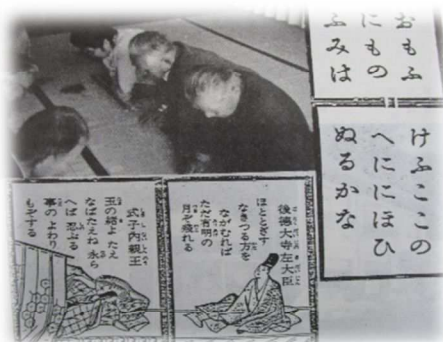 おもふ
にもの
ふみは
けふここの
へににほひ
ぬるかな
後徳大寺左大臣
ほととぎす
なきつる方を
ながむれば
ただ有明の
月ぞ残れる
式子内親王
玉の緒よ たえ
なばたえね 永ら
へば 忍ぶる
事の よわり
もぞする